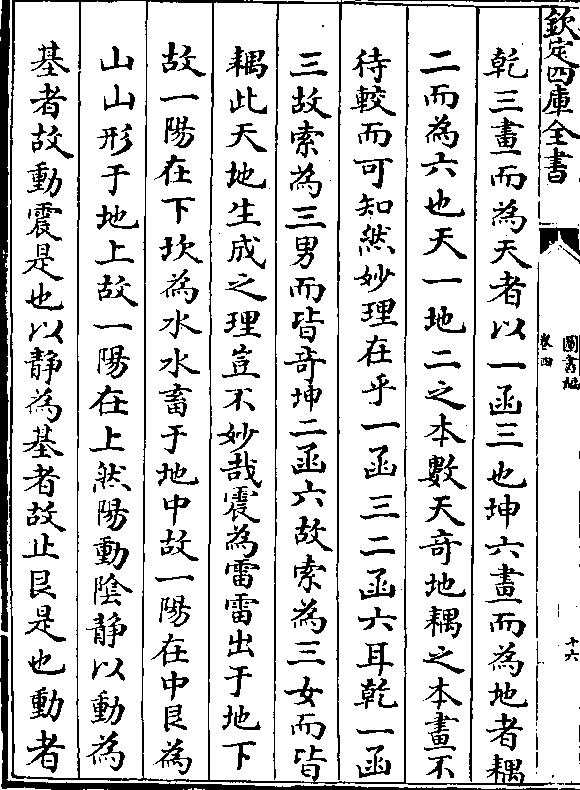 欽定四庫全書
圖書編
卷四
十六
乾三畫而為天者以一函三也坤六畫而為地者耦
二而為六也天一地二之本數天奇地耦之本畫不
待較而可知然妙理在乎一函三二函六耳乾一函
三故索為三男而皆奇坤二函六故索為三女而皆
耦此天地生成之理豈不妙哉震為雷雷出于地下
故一陽在下坎為水水畜于地中故一陽在中艮為
山山形于地上故一陽在上然陽動陰静以動為
基者故動震是也以静為基者故止艮是也動者